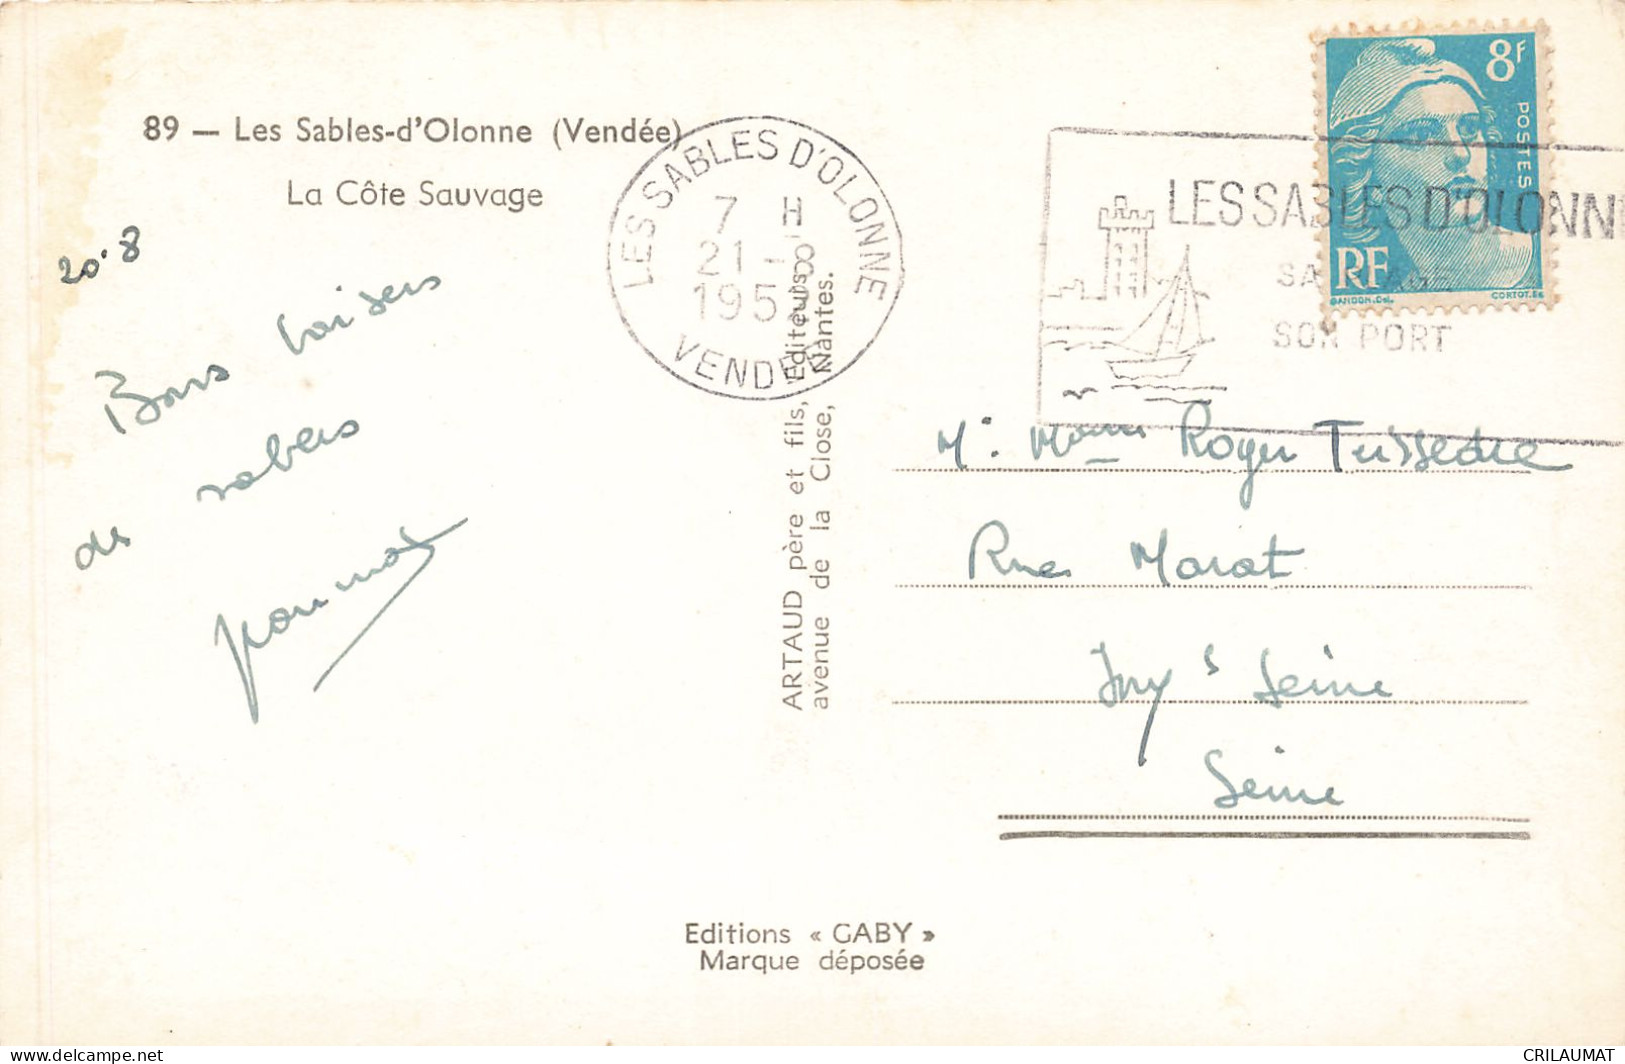 89 — Les Sables-d'Olonne (Vendée)
La Côte Sauvage
20.8
Bons baisers
de
LES SABLES D'OLONNE
7 H
21 - 8
195
VENDÉE
ARTAUD père et fils, Editeurs
avenue de la Close, Nantes.
LES SABLES D'OLONN
SA
SON PORT
8F
POSTES
RF
GANDON.Del.
CORTOT.Sc
Mr. Mme Roger Tissedre
Rue Marat
Ivry s Seine
Seine
Editions « GABY »
Marque déposée
www.delcampe.net
CRILAUMAT